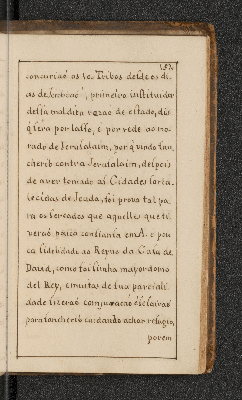 concurrião os 10. Tribos desde os di-
as de, primeiro instituidor
desta maldita razaõ de estado, dis-
por laço, e por rede ao mo-
rado de Jerusalaim, por q̃ vindo San-
cherib contra Jerusalaim, despois
de aver tomado as Cidades forta-
lecidas de Jeuda, foi prova tal pa-
ra os cercados que aquelles que ti-
veraõ pouca constansia em A. e pou-
ca fidelidade ao Reyno da Casa de
David, como foi mayordomo
del Rey, e muitos de sua parciali-
dade fizeraõ conjuracaõ
para Sancherib cuidando achar refugio,
porem